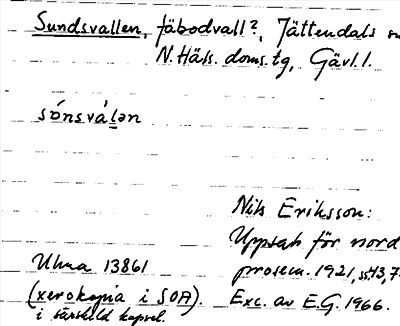 Sundsvallen, fäbodvall?, Jättendals
N. Häls. doms.tg, Gävl.l.
sónsválən
Nils Eriksson:
Uppsats för nord
prosem. 1921, ss. 43, 7
Exc. av E.G. 1966.
Ulma 13861
(xerokopia i SOA).
i särskild kapsel.